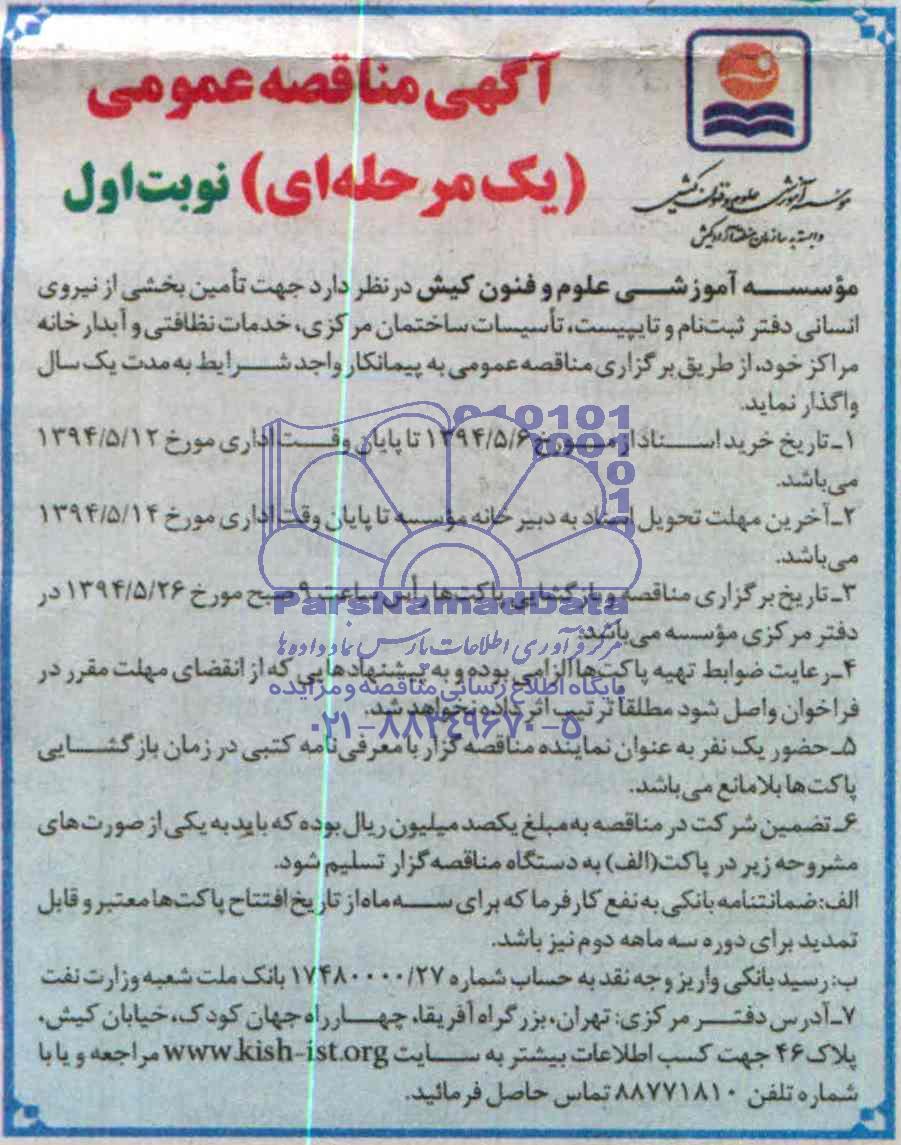 آگهی مناقصه عمومی
(یک مرحله‌ای) نوبت اول
مؤسسه آموزشی علوم و فنون کیش
وابسته به سازمان منطقه آزاد کیش
مؤسسه آموزشی علوم و فنون کیش در نظر دارد جهت تأمین بخشی از نیروی
انسانی دفتر ثبت‌نام و تایپیست، تأسیسات ساختمان مرکزی، خدمات نظافتی و آبدارخانه
مراکز خود، از طریق برگزاری مناقصه عمومی به پیمانکار واجد شرایط به مدت یک سال
واگذار نماید.
۱ـ تاریخ خرید اسناد از مورخ ۱۳۹۴/۵/۶ تا پایان وقت اداری مورخ ۱۳۹۴/۵/۱۲
می‌باشد.
۲ـ آخرین مهلت تحویل اسناد به دبیرخانه مؤسسه تا پایان وقت اداری مورخ ۱۳۹۴/۵/۱۴
می‌باشد.
۳ـ تاریخ برگزاری مناقصه و بازگشایی پاکت‌ها رأس ساعت ۹ صبح مورخ ۱۳۹۴/۵/۲۶ در
دفتر مرکزی مؤسسه می‌باشد.
۴ـ رعایت ضوابط تهیه پاکت‌ها الزامی بوده و به پیشنهادهایی که از انقضای مهلت مقرر در
فراخوان واصل شود مطلقا ترتیب اثر داده نخواهد شد.
۵ـ حضور یک نفر به عنوان نماینده مناقصه گزار با معرفی‌نامه کتبی در زمان بازگشایی
پاکت‌ها بلامانع می‌باشد.
۶ـ تضمین شرکت در مناقصه به مبلغ یکصد میلیون ریال بوده که باید به یکی از صورت‌های
مشروحه زیر در پاکت (الف) به دستگاه مناقصه گزار تسلیم شود.
الف: ضمانتنامه بانکی به نفع کارفرما که برای سه ماه از تاریخ افتتاح پاکت‌ها معتبر و قابل
تمدید برای دوره سه ماهه دوم نیز باشد.
ب: رسید بانکی واریز وجه نقد به حساب شماره ۱۷۴۸۰۰۰۰/۲۷ بانک ملت شعبه وزارت نفت
۷ـ آدرس دفتر مرکزی: تهران، بزرگراه آفریقا، چهارراه جهان کودک، خیابان کیش،
پلاک ۴۶ جهت کسب اطلاعات بیشتر به سایت www.kish-ist.org مراجعه و یا با
شماره تلفن ۸۸۷۷۱۸۱۰ تماس حاصل فرمائید.
ParsNamadData
مرکز فرآوری اطلاعات پارس نماد داده‌ها
پایگاه اطلاع رسانی مناقصه و مزایده
۰۲۱-۸۸۳۴۹۶۷۰-۵